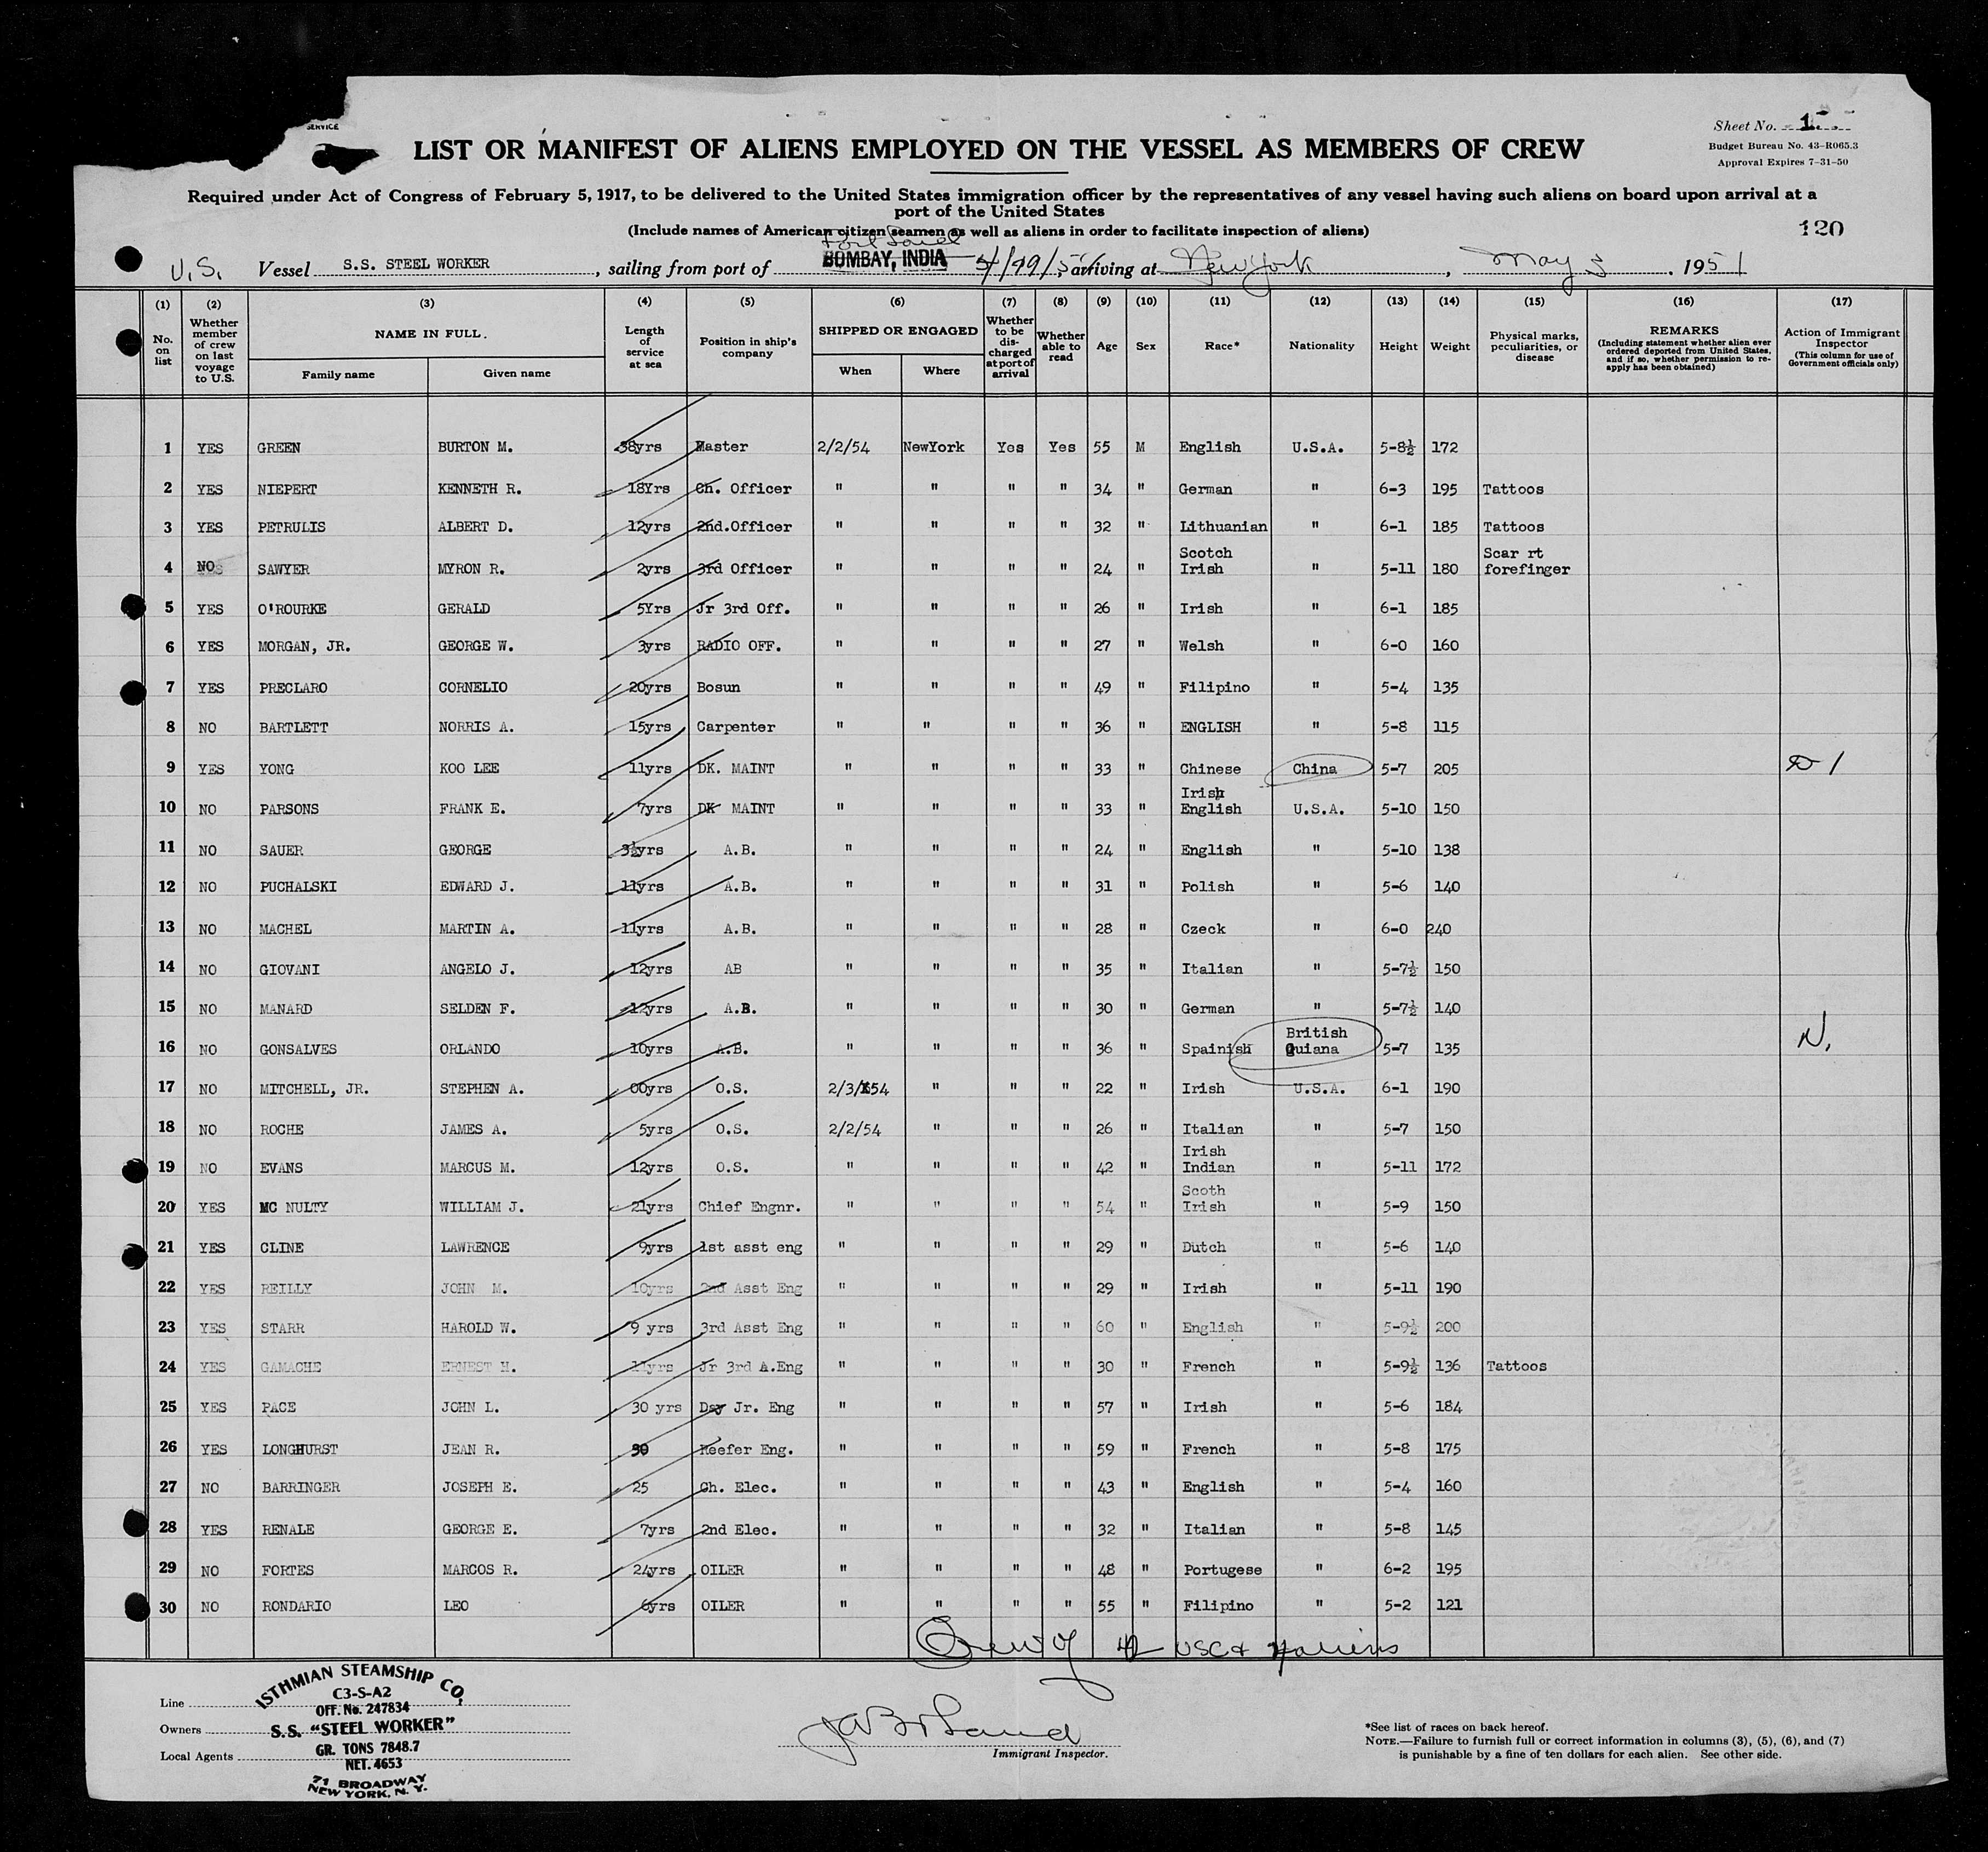 SERVICE
Sheet No. 1
Budget Bureau No. 43-R065.3
Approval Expires 7-31-50
LIST OR MANIFEST OF ALIENS EMPLOYED ON THE VESSEL AS MEMBERS OF CREW
Required under Act of Congress of February 5, 1917, to be delivered to the United States immigration officer by the representatives of any vessel having such aliens on board upon arrival at a
port of the United States
(Include names of American citizen seamen as well as aliens in order to facilitate inspection of aliens)
120
Port Said
U.S. Vessel S.S. STEEL WORKER, sailing from port of BOMBAY, INDIA arriving at New York, May 1951
(1) (2) (3) (4) (5) (6) (7) (8) (9) (10) (11) (12) (13) (14) (15) (16) (17)
No. on list
Whether member of crew on last voyage to U.S.
NAME IN FULL.
Family name
Given name
Length of service at sea
Position in ship's company
SHIPPED OR ENGAGED
When
Where
Whether to be discharged at port of arrival
Whether able to read
Age
Sex
Race*
Nationality
Height
Weight
Physical marks, peculiarities, or disease
REMARKS
(Including statement whether alien ever ordered deported from United States, and if so, whether permission to reapply has been obtained)
Action of Immigrant Inspector
(This column for use of Government officials only)
1 YES GREEN BURTON M. 38yrs Master 2/2/54 NewYork Yes Yes 55 M English U.S.A. 5-8½ 172
2 YES NIEPERT KENNETH R. 18Yrs Ch. Officer " " " " 34 " German " 6-3 195 Tattoos
3 YES PETRULIS ALBERT D. 12yrs 2nd.Officer " " " " 32 " Lithuanian " 6-1 185 Tattoos
4 NO SAWYER MYRON R. 2yrs 3rd Officer " " " " 24 " Scotch Irish " 5-11 180 Scar rt forefinger
5 YES O'ROURKE GERALD 5Yrs Jr 3rd Off. " " " " 26 " Irish " 6-1 185
6 YES MORGAN, JR. GEORGE W. 3yrs RADIO OFF. " " " " 27 " Welsh " 6-0 160
7 YES PRECLARO CORNELIO 20yrs Bosun " " " " 49 " Filipino " 5-4 135
8 NO BARTLETT NORRIS A. 15yrs Carpenter " " " " 36 " ENGLISH " 5-8 115
9 YES YONG KOO LEE 11yrs DK. MAINT " " " " 33 " Chinese China 5-7 205
10 NO PARSONS FRANK E. 7yrs DK MAINT " " " " 33 " Irish English U.S.A. 5-10 150
11 NO SAUER GEORGE 3½yrs A.B. " " " " 24 " English " 5-10 138
12 NO PUCHALSKI EDWARD J. 11yrs A.B. " " " " 31 " Polish " 5-6 140
13 NO MACHEL MARTIN A. 11yrs A.B. " " " " 28 " Czeck " 6-0 240
14 NO GIOVANI ANGELO J. 12yrs AB " " " " 35 " Italian " 5-7½ 150
15 NO MANARD SELDEN F. 12yrs A.B. " " " " 30 " German " 5-7½ 140
16 NO GONSALVES ORLANDO 10yrs A.B. " " " " 36 " Spainish British Guiana 5-7 135 N.
17 NO MITCHELL, JR. STEPHEN A. 00yrs O.S. 2/3/54 " " " 22 " Irish U.S.A. 6-1 190
18 NO ROCHE JAMES A. 5yrs O.S. 2/2/54 " " " 26 " Italian " 5-7 150
19 NO EVANS MARCUS M. 12yrs O.S. " " " " 42 " Irish Indian " 5-11 172
20 YES MC NULTY WILLIAM J. 21yrs Chief Engnr. " " " " 54 " Scoth Irish " 5-9 150
21 YES CLINE LAWRENCE 9yrs 1st asst eng " " " " 29 " Dutch " 5-6 140
22 YES REILLY JOHN M. 10yrs 2nd Asst Eng " " " " 29 " Irish " 5-11 190
23 YES STARR HAROLD W. 9 yrs 3rd Asst Eng " " " " 60 " English " 5-9½ 200
24 YES GAMACHE ERNEST H. 11yrs Jr 3rd A.Eng " " " " 30 " French " 5-9½ 136 Tattoos
25 YES PACE JOHN L. 30 yrs Day Jr. Eng " " " " 57 " Irish " 5-6 184
26 YES LONGHURST JEAN R. 30 Reefer Eng. " " " " 59 " French " 5-8 175
27 NO BARRINGER JOSEPH E. 25 Ch. Elec. " " " " 43 " English " 5-4 160
28 YES RENALE GEORGE E. 7yrs 2nd Elec. " " " " 32 " Italian " 5-8 145
29 NO FORTES MARCOS R. 24yrs OILER " " " " 48 " Portugese " 6-2 195
30 NO RONDARIO LEO 6yrs OILER " " " " 55 " Filipino " 5-2 121
Crew of USC & aliens
Line
Owners
Local Agents
ISTHMIAN STEAMSHIP CO.
C3-S-A2
OFF. No. 247834
S.S. "STEEL WORKER"
GR. TONS 7848.7
NET. 4653
71 BROADWAY
NEW YORK, N. Y.
Immigrant Inspector.
*See list of races on back hereof.
NOTE.—Failure to furnish full or correct information in columns (3), (5), (6), and (7)
is punishable by a fine of ten dollars for each alien. See other side.